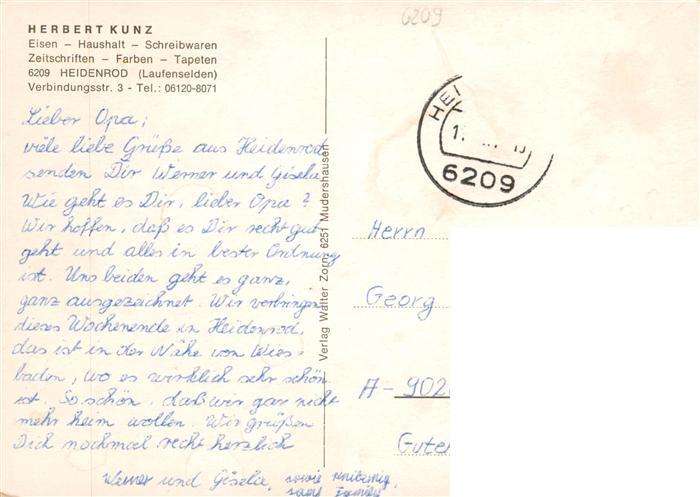 6209
HERBERT KUNZ
Eisen – Haushalt – Schreibwaren
Zeitschriften – Farben – Tapeten
6209 HEIDENROD (Laufenselden)
Verbindungsstr. 3 - Tel.: 06120-8071
Lieber Opa,
viele liebe Grüße aus Heidenrod
senden Dir Werner und Gisela.
Wie geht es Dir, lieber Opa?
Wir hoffen, daß es Dir recht gut
geht und alles in bester Ordnung
ist. Uns beiden geht es ganz,
ganz ausgezeichnet. Wir verbringen
dieses Wochenende in Heidenrod,
das ist in der Nähe von Wies-
baden, wo es wirklich sehr schön
ist. So schön, daß wir gar nicht
mehr heim wollen. Wir grüßen
Dich nochmal recht herzlich
Werner und Gisela, sowie
Verlag Walter Zorn, 6251 Mudershausen
HEI
6209
Herrn
Georg
A-902
Guten